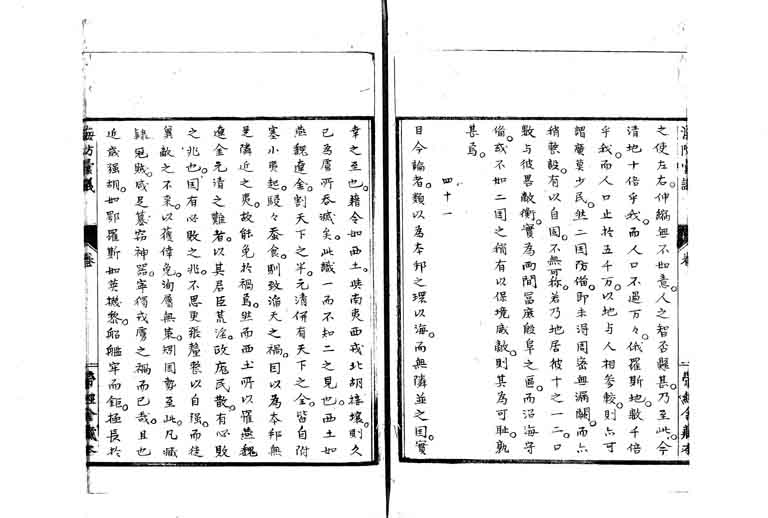 之使左右。伸縮無不如意。人之智否懸甚。乃至此。今
清地十倍乎我。而人口不過万々。俄羅斯地數千倍
乎我。而人口止於五千万。以地与人相參較。則亦可
謂廣莫少民。然二国防備。即未得周密無漏闕。而亦
稍整設有以自固。不無可称。若乃地居彼十之一二。口
數与彼略敵衡。實為両間冨庶殷阜之區。而沿海守
備。或不如二国之稍有以保境威敵。則其為可耻。孰
甚焉。
四十一
目今論者。類以為本邦之環以海而無隣並之国實
幸之至也。藉令如西土。與南夷西戎北胡接壤。則久
已為虜所吞滅矣。此識一而不知二之見也。西土如
燕魏遼金。割天下之半。元清併有天下之全。皆自附
塞小夷起。駸々蚕食。則致滔天之禍。因以為本邦無
是隣近之夷。故能免於禍焉。然而西土所以罹燕魏
遼金元清之難者。以其君臣荒淫。政庬民散。有必敗
之兆也。国有必敗之兆。不思更張釐整以自强。而徒
冀敵之不来。以獲倖免。洵屬無策。矧国勢至此。凡
冦賊。咸足簒窃神器。寧獨戎虜之禍而已哉。且也
近歳强胡。如鄂羅斯如英機黎。船艦牢而鉅。極長於
海防彙議
卷